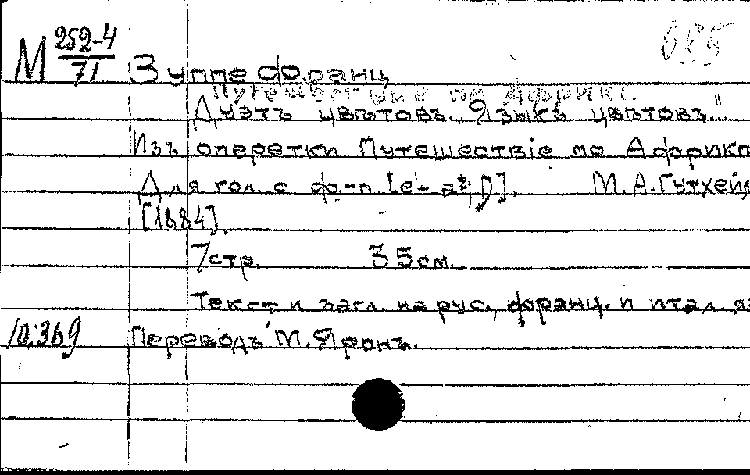 М 252-4/71 Зуппе Франц
Путешествие по Африке.
Дуэтъ цвѣтовъ. "Языкъ цвѣтовъ"
Изъ оперетки Путешествіе по Африкѣ
Для гол. с ф-п. М. А. Гутхейл
[1884].
7 стр. 35 см.
Текст и загл. на рус., франц. и итал. яз
10.369 Переводъ М. Ярона.